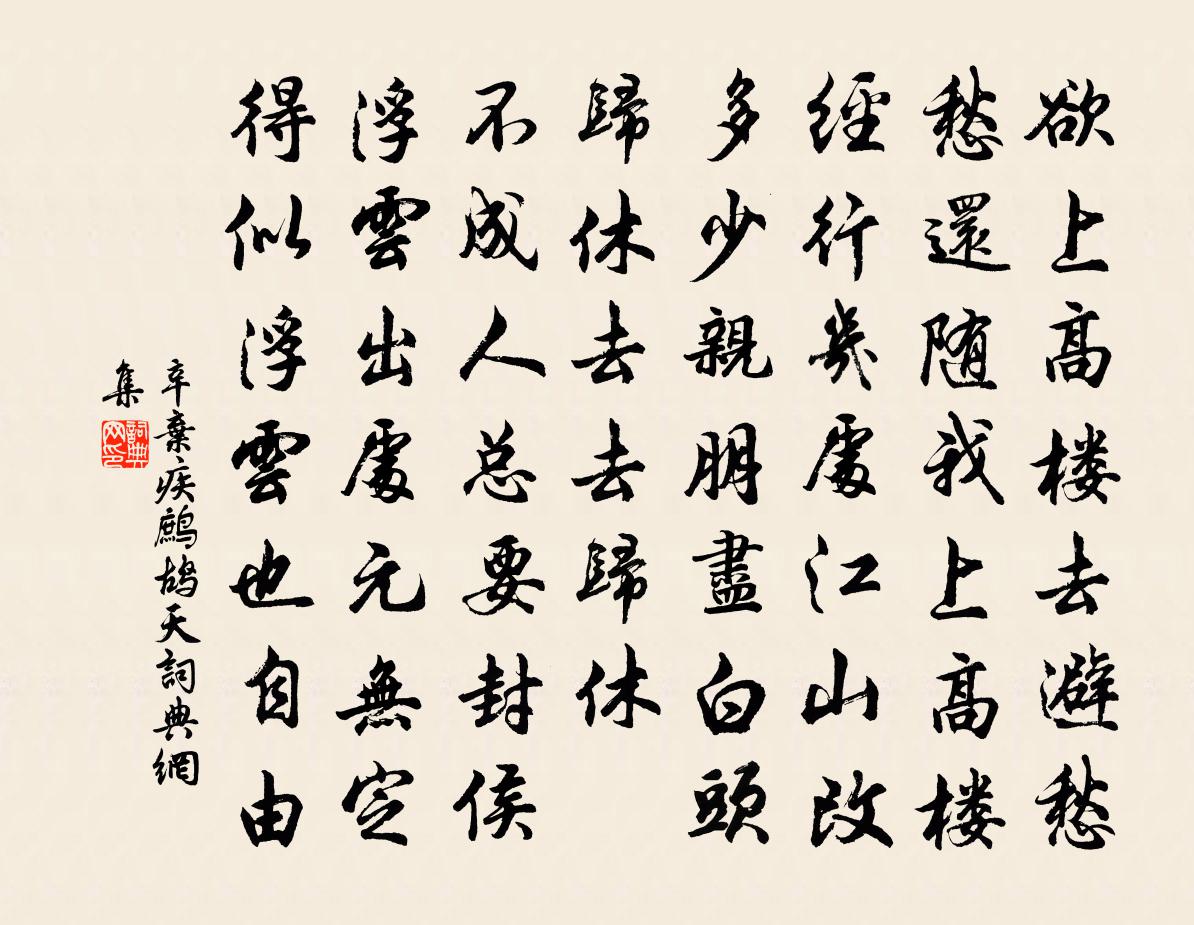 欲上高楼去避愁
愁還随我上高楼
經行幾處江山改
多少親朋盡白頭
歸休去去歸休
不成人总要封侯
浮雲出處元無定
得似浮雲也自由
辛棄疾鷓鴣天詞典網
集
詞典网印